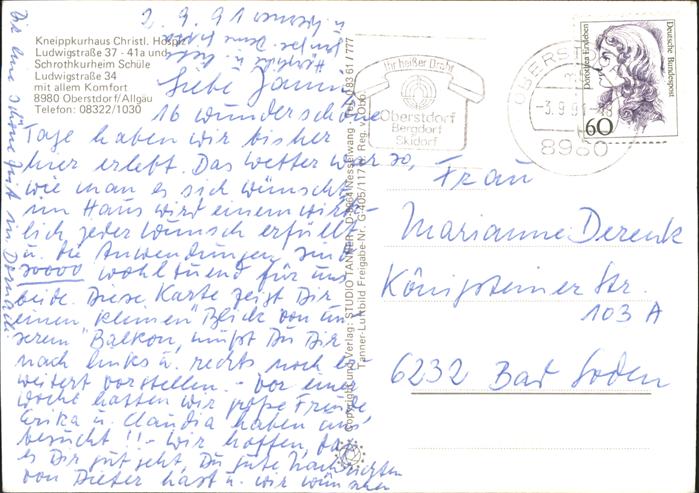 Kneippkurhaus Christl. Hospiz
Ludwigstraße 37 - 41a und
Schrothkurheim Schüle
Ludwigstraße 34
mit allem Komfort
8980 Oberstdorf/Allgäu
Telefon: 08322/1030
2.9.91
Liebe
16 wunderschöne
Tage haben wir bisher
hier erlebt. Das Wetter war so,
wie man es sich wünscht
im Haus wird einem wirk-
lich jeder Wunsch erfüllt
u. die Anwendungen sind
soooo wohltuend für uns
beide. Diese Karte zeigt Dir
einen kleinen Blick von un-
serem "Balkon, mußt Du Dir
nach links u. rechts noch er-
weitert vorstellen. - Vor einer
Woche hatten wir große Freude,
Erika u. Claudia haben uns
besucht !! - Wir hoffen, daß
es Dir gut geht, Du gute Nachrichten
von Dieter hast u. wir wünschen
Dir eine schöne Zeit in
Copyright und Verlag: STUDIO TANNER, D-8964 Nesselwang - Tel. 0 83 61 / 777
Tanner-Luftbild Freigabe-Nr. G-405/117 d. Reg. v.
Ihr heißer Draht
Oberstdorf
Bergdorf
Skidorf
-3.9.91-18
8980
Dorothea Erxleben
Deutsche Bundespost
60
Frau
Marianne Derenk
Königsteiner Str.
103 A
6232 Bad Soden